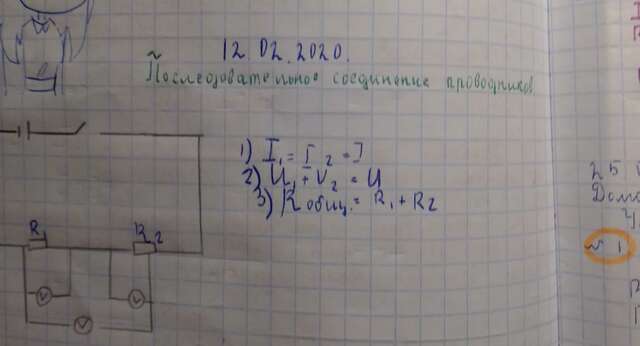 12.02.2020.
Последовательное соединение проводников.
1) I₁ = I₂ = I
2) U₁ + U₂ = U
3) R общ. = R₁ + R₂
R
R₂
V
V
V
25
№ 1